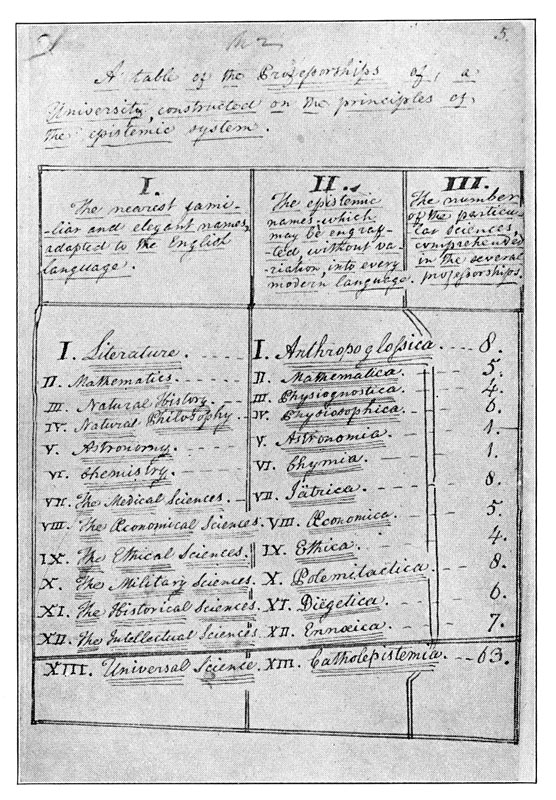 5.
A table of the Professorships of, a
University, constructed on the principles of
the epistemic system.
I.
The nearest fami-
-liar and elegant names,
adapted to the English
language.
II.
The epistemic
names, which
may be engraf-
-ted, without va-
-riation, into every
modern language.
III.
The number
of the particu-
lar sciences,
comprehended
in the several
professorships.
I. Literature. I. Anthropoglossica. 8.
II. Mathematics. II. Mathematica. 5.
III. Natural History. III. Physiognostica. 4.
IV. Natural Philosophy. IV. Physiosophica. 6.
V. Astronomy. V. Astronomia. 1.
VI. Chemistry. VI. Chymia. 1.
VII. The Medical Sciences. VII. Iätrica. 8.
VIII. The Œconomical Sciences. VIII. Œconomica. 5.
IX. The Ethical Sciences. IX. Ethica. 4.
X. The Military Sciences. X. Polemitactica. 8.
XI. The Historical Sciences. XI. Diëgetica. 6.
XII. The Intellectual Sciences. XII. Ennœica. 7.
XIII. Universal Science. XIII. Catholepistemia. 63.